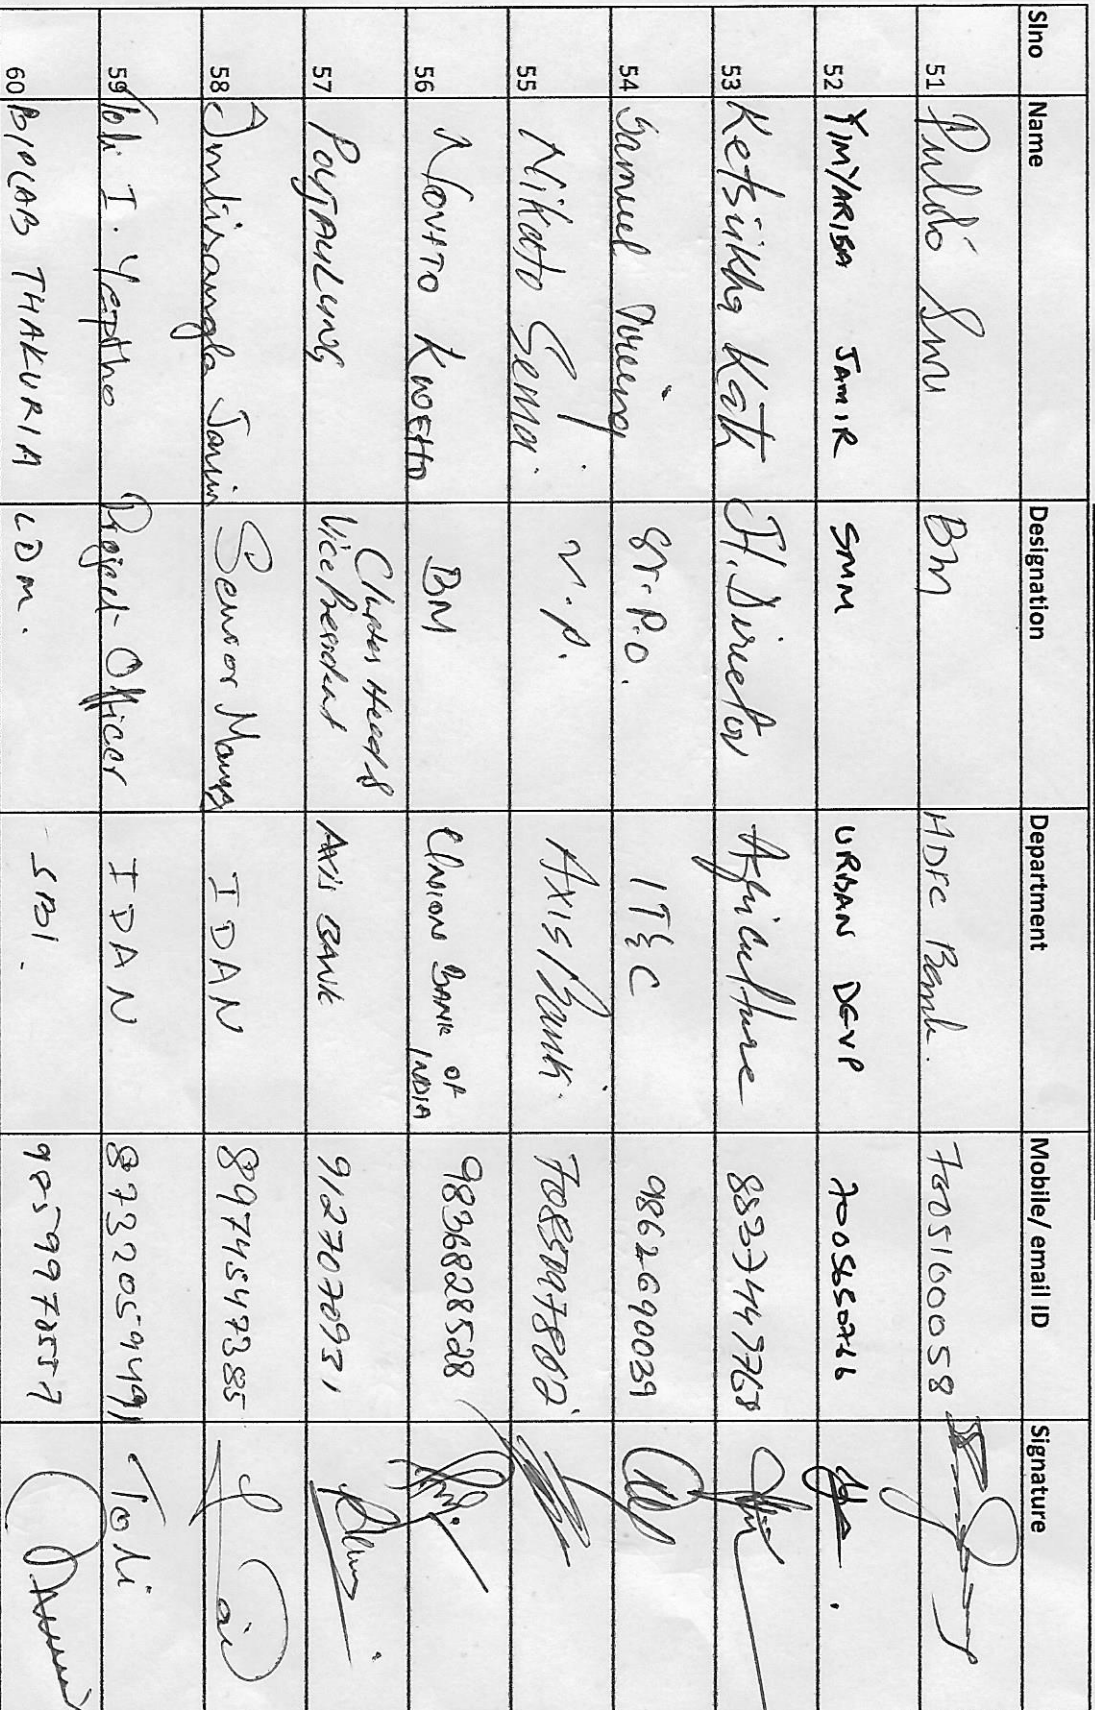 Slno Name Designation Department Mobile/ email ID Signature
51 Pulobo Swu BM HDFC Bank. 7005100058
52 YIMYARISA JAMIR SMM URBAN DEVP 7005650766
53 Ketsukha Kath Jt. Director Agriculture 8837447768
54 Samuel Sr. P.O. IT & C 9862690039
55 Nikato Sema. V.P. Axis Bank. 7085097862
56 NOVITO KHOEHO BM UNION BANK OF INDIA 9836828528
57 Cluster Head & Vice President AXIS BANK 9127070931
58 Imtisangla Jamir Senior Manager IDAN 8974547385
59 Toli I. Yeptho Project Officer IDAN 8732059449 Toli
60 BIPLAB THAKURIA LDM. SBI.